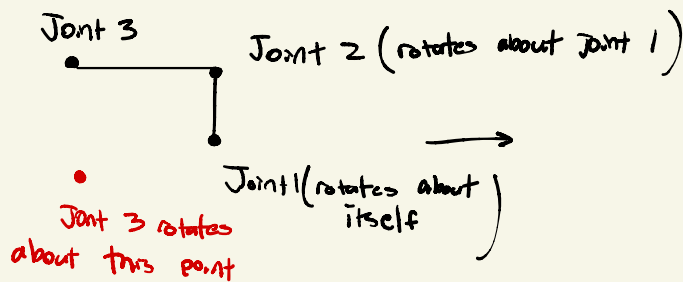 Joint 3
Joint 2 (rotates about joint 1)
Joint 1 (rotates about
itself)
Joint 3 rotates
about this point